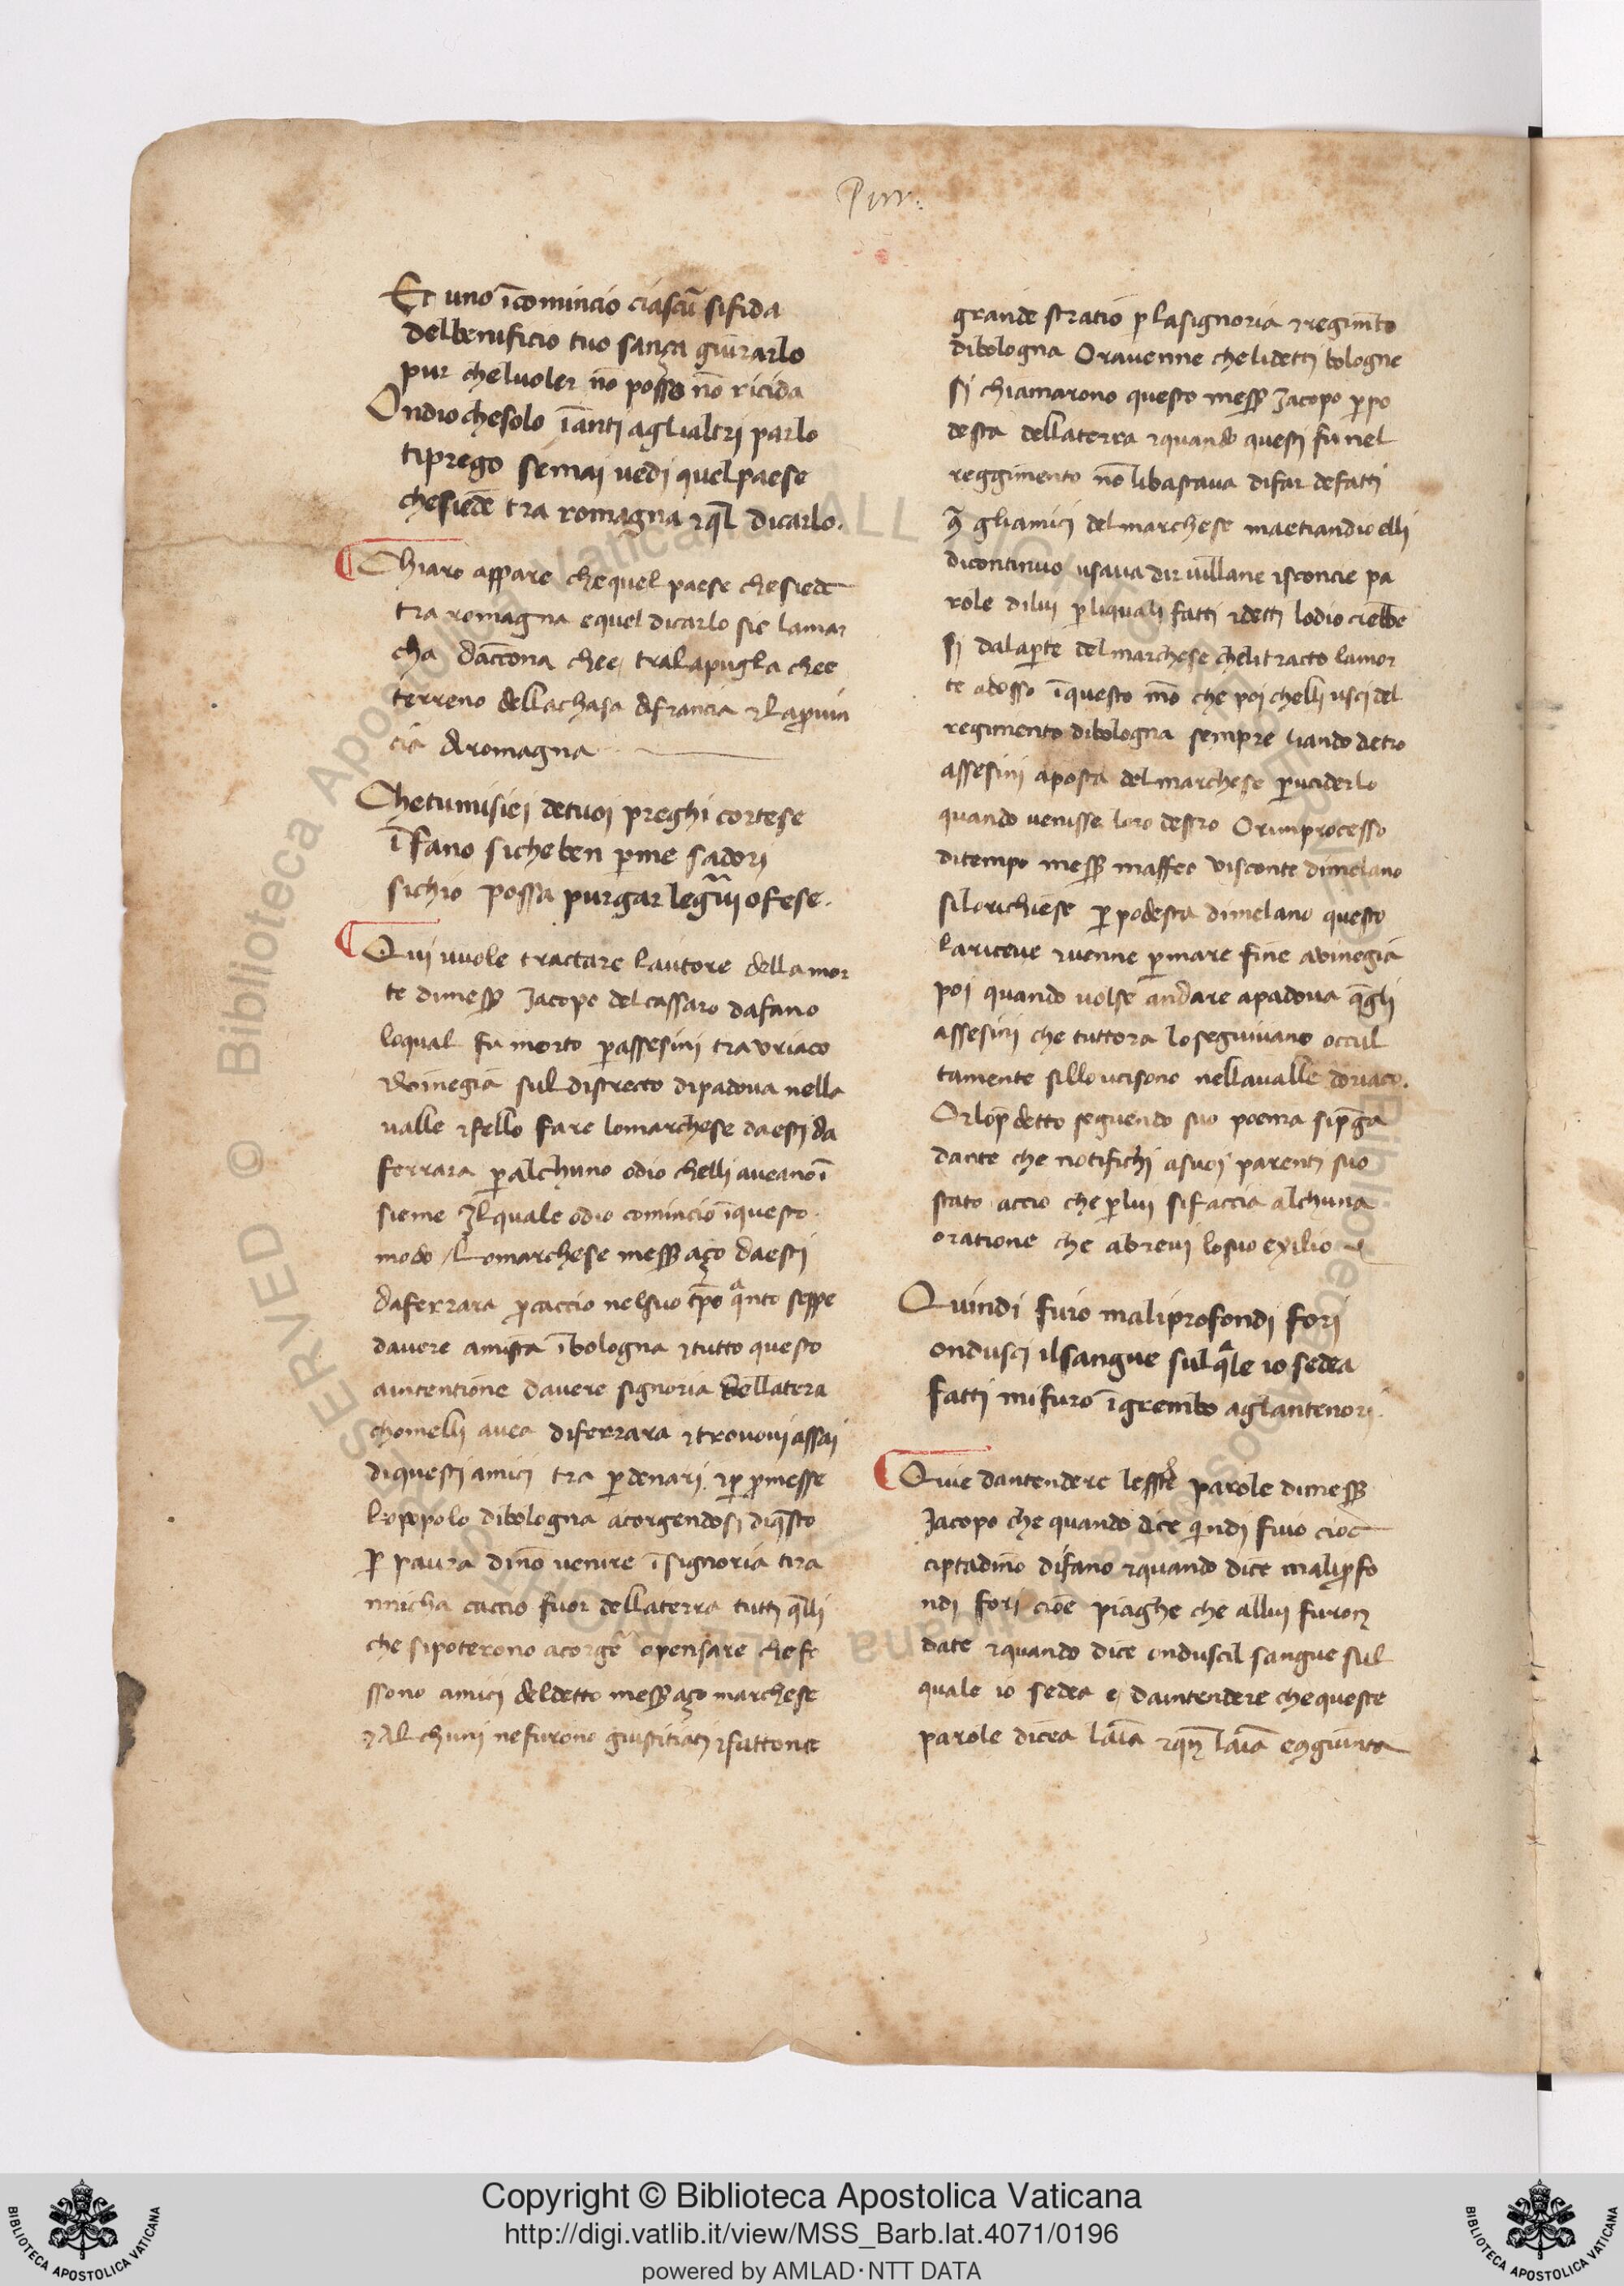 Pur.
Et uno īcomincio ciascū sifida
delbenificio tuo sanza giurarlo
pur chelvoler nō possa nō ricida
Ondio chesolo īanti aglialtri parlo
tiprego semai vedi quelpaese
chesiede tra romagna ⁊ql̄ dicarlo.
Chiaro appare chequel paese chesiede
tra romagna equel dicarlo sie lamar
cha dāccona chee tralapugla chee
terreno dellachasa difrancia ⁊laprouin
cia diromagna
Chetumisiei detuoi preghi cortese
īfano sicheben ꝑme sadori
sichio possa purgar legͣui ofese.
Qui vuole tractare lautore dellamor
te dimesẜ Jacopo delcassaro dafano
loqual fu morto ꝑassesini tra uriaco
⁊vinegia sul distrecto dipadova nella
valle ⁊fello fare lomarchese daesti da
ferrara ꝑalchuno odio chelli aveano ī
sieme Ilquale odio comincio īquesto
modo Lomarchese mesẜ azo daesti
daferrara ꝓcaccio nelsuo tp̄o qͣnto seppe
davere amista ībologna ⁊tutto questo
aintentione davere signoria dellatera
chomelli avea diferrara ⁊trovovi assai
diquesti amici tra ꝑdenari ⁊ꝑ ꝓmesse
Lopopolo dibologna acorgendosi diq̄sto
ꝑ paura dinō venire īsignoria tira
nnicha caccio fuor dellaterra tutti q̄lli
che sipoterono acorgē opensare chefe
ssono amici deldetto mesẜ azo marchese
⁊Alchuni nefurono giustitiati ⁊fattone
grande stratio ꝑ lasignoria ⁊regimēto
dibologna Oravenne chelidetti bologne
si chiamarono questo mesẜ Jacopo ꝑpo
desta dellaterra ⁊quando questi fu nel
reggimento nō libastava difar defatti
gliamici delmarchese maetiandio elli
dicontinuo usava dir villane ⁊sconcie pa
role dilui ꝑliquali fatti ⁊detti lodio crebbe
si dalaparte delmarchese chelitracto lamor
te adosso īquesto mō che poi chelli usci del
regimento dibologna sempre liando dietro
assesini aposta delmarchese ꝑuciderlo
quando venisse loro destro Orinprocesso
ditempo mesẜ maffeo visconte dimelano
silorichiese ꝑ podesta dimelano questo
lariceve ⁊venne ꝑmare fine avinegia
poi quando volse andare apadova q̄gli
assesini che tuttora loseguivano occul
tamente sillo ucisono nellavalle doriaco.
Orlop̄detto seguendo suo poema sip̄ga
dante che notifichi asuoi parenti suo
stato accio che ꝑlui sifaccia alchuna
oratione che abrevi losuo exilio
Quindi fuio maliprofondi fori
ondusci ilsangue sulqͣle io sedea
fatti mifuro īgrembo aglantenori.
Quie dantendere parole dimesẜ
Jacopo che quando dice quindi fuio cioe
ciptadino difano ⁊quando dice maliꝓfo
ndi fori cioe piaghe che allui furon
date ⁊quando dice onduscil sangue sul
quale io sedea e daintendere chequeste
parole dicea lāīa ⁊ lāīa congiunta
Copyright © Biblioteca Apostolica Vaticana
http://digi.vatlib.it/view/MSS_Barb.lat.4071/0196
powered by AMLAD·NTT DATA
BIBLIOTECA APOSTOLICA VATICANA
BIBLIOTECA APOSTOLICA VATICANA